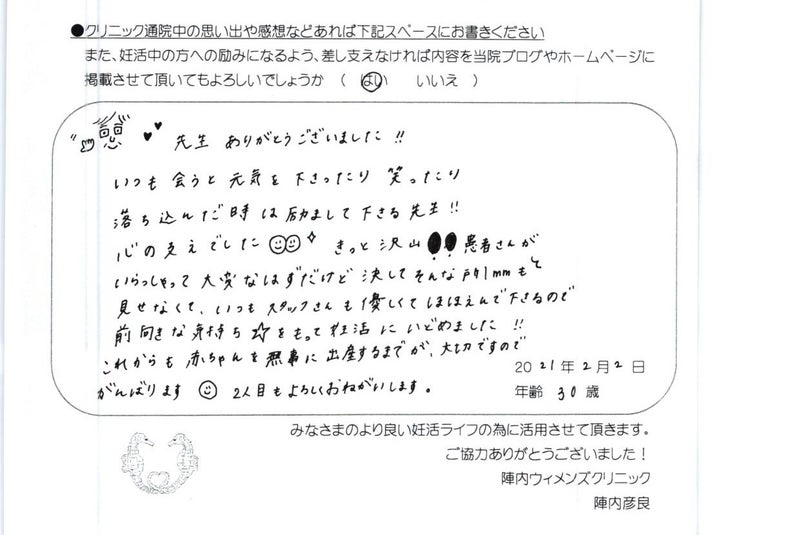 ●クリニック通院中の思い出や感想などあれば下記スペースにお書きください
また、妊活中の方への励みになるよう、差し支えなければ内容を当院ブログやホームページに
掲載させて頂いてもよろしいでしょうか （ はい いいえ ）
先生 ありがとうございました!!
いつも 会うと 元気を 下さったり 笑ったり
落ち込んだ時は励まして下さる先生!!
心の支えでした きっと 沢山 患者さんが
いらっしゃって 大変なはずだけど 決してそんな所1mmも
見せなくて、いつも スタッフさんも優しくてほほえんで下さるので
前向きな気持ち☆をもって妊活にいどめました!!
これからも 赤ちゃんを無事に出産するまでが、大切ですので
がんばります 2人目もよろしくおねがいします。
2021年2月2日
年齢 30歳
みなさまのより良い妊活ライフの為に活用させて頂きます。
ご協力ありがとうございました！
陣内ウィメンズクリニック
陣内彦良